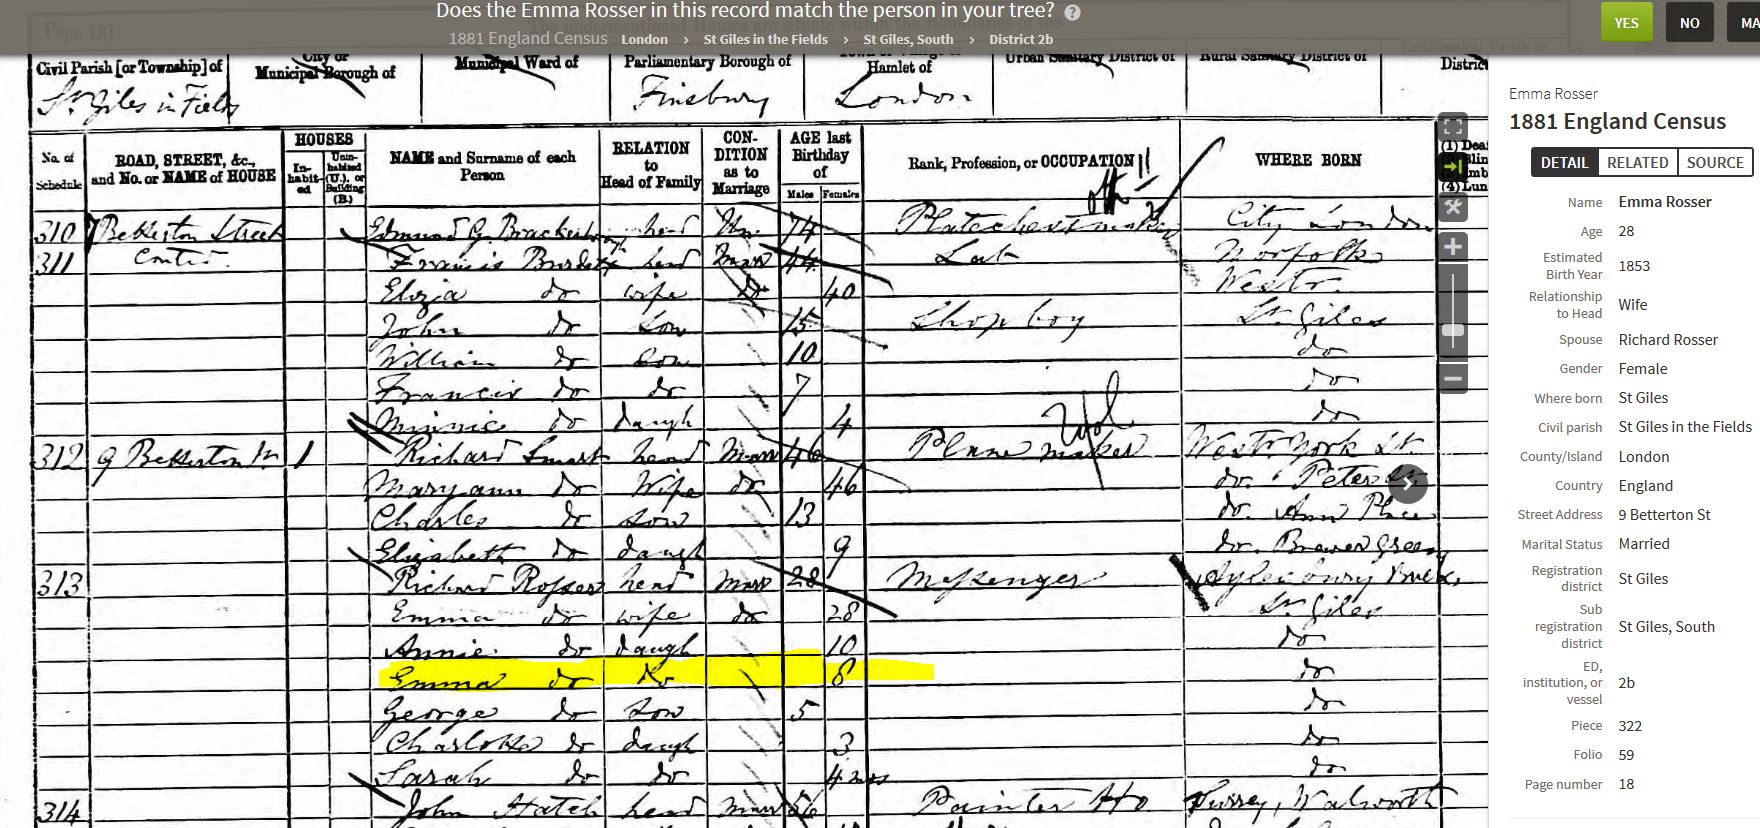 Does the Emma Rosser in this record match the person in your tree? ?
YES NO MA
1881 England Census London > St Giles in the Fields > St Giles, South > District 2b
Page 18]
The undermentioned Houses are situate within the Boundaries of the
Civil Parish [or Township] of
City or
Municipal Borough of
Municipal Ward of
Parliamentary Borough of
Hamlet of
Urban Sanitary District of
Rural Sanitary District of
District
St Giles in Fields
Finsbury
London
No. of
Schedule
ROAD, STREET, &c.,
and No. or NAME of HOUSE
HOUSES
In-
habit-
ed
Unin-
habited
(U.), or
Building
(B.)
NAME and Surname of each
Person
RELATION
to
Head of Family
CON-
DITION
as to
Marriage
AGE last
Birthday
of
Males Females
Rank, Profession, or OCCUPATION
WHERE BORN
310 Betterton Street Edmund G. Brackenbrough head Un. 74 Platechestmaker City London
311 Contd. Francis Burdett head Marr 44 Norfolk
Eliza do wife do 40 Westr.
John do Son 15 Shop boy St Giles
William do Son 10 do
Francis do do 7 do
Minnie do daugh 4 do
312 9 Betterton St 1 Richard Smart head Marr 46 Plane maker Westr York St.
Mary ann do Wife do 46 do. Peter St
Charles do son 13 do. Ann Place
Elizabeth do daugh 9 do. Brewer Green
313 Richard Rosser head marr 28 Messenger Aylesbury Bucks
Emma do wife do 28 St Giles
Annie do daugh 10 do
Emma do Do 8 do
George do Son 5 do
Charlotte do daugh 3 do
Sarah do do 4 mos do
314 John Hatch head marr 56 Painter Ho Surrey, Walworth
Emma Rosser
1881 England Census
DETAIL RELATED SOURCE
Name Emma Rosser
Age 28
Estimated
Birth Year 1853
Relationship
to Head Wife
Spouse Richard Rosser
Gender Female
Where born St Giles
Civil parish St Giles in the Fields
County/Island London
Country England
Street Address 9 Betterton St
Marital Status Married
Registration
district St Giles
Sub
registration
district St Giles, South
ED,
institution, or
vessel 2b
Piece 322
Folio 59
Page number 18